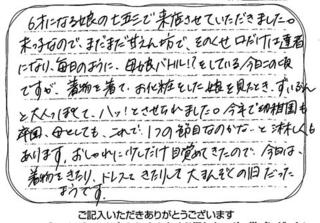 6才になる娘の七五三で来店させていただきました。
末っ子なので、まだまだ甘えん坊で、そのくせ口だけは達者
になり、毎日のように、母娘バトル!?をしている今日この頃
ですが、着物を着て、お化粧をした娘を見たとき、ずいぶん
と大人っぽくて、ハッ!とさせられました。今年で幼稚園も
卒園、母としても、これで、1つの節目なのかな…と淋しくも
あります。おしゃれにだけ目覚めてきたので、今日は、
着物をきたり、ドレスをきたりして大まんぞくの1日だった
ようです。
ご記入いただきありがとうございます